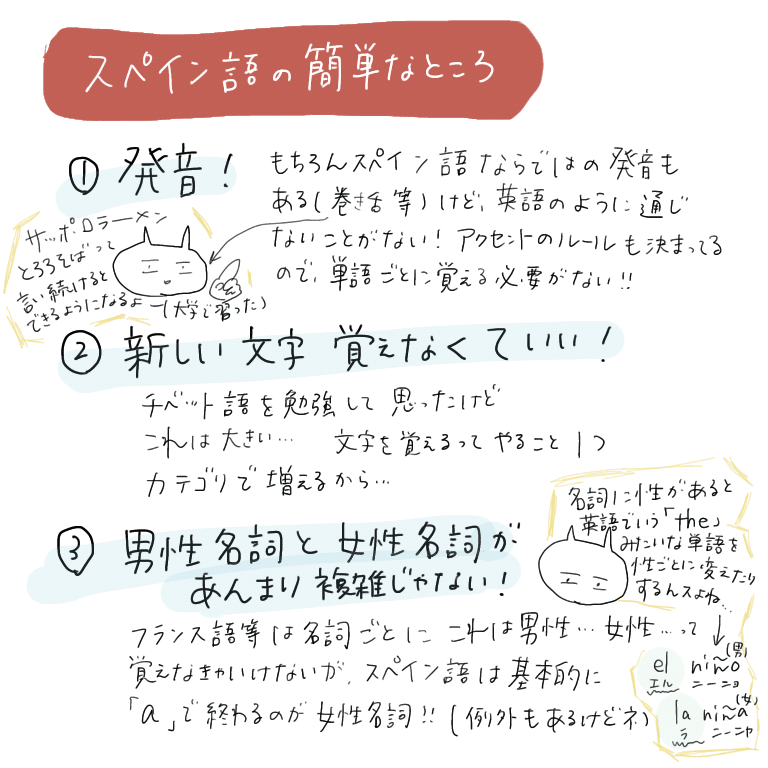 スペイン語の簡単なところ
① 発音!
もちろんスペイン語ならではの発音も
ある(巻き舌等)けど、英語のように通じ
ないことがない! アクセントのルールも決まってる
ので、単語ごとに覚える必要がない!!
サッポロラーメン
とろろそばって
言い続けると
できるようになるよー(大学で習った)
② 新しい文字 覚えなくていい!
チベット語を勉強して思ったけど
これは大きい… 文字を覚えるってやること1つ
カテゴリで増えるから…
③ 男性名詞と女性名詞が
あんまり複雑じゃない!
名詞に性があると
英語でいう「the」
みたいな単語を
性ごとに変えたり
するんスよね…
フランス語等は名詞ごとにこれは男性…女性…って
覚えなきゃいけないが、スペイン語は基本的に
「a」で終わるのが女性名詞!!(例外もあるけどネ)
el niño (男)
エル ニーニョ
la niña (女)
ラ ニーニャ